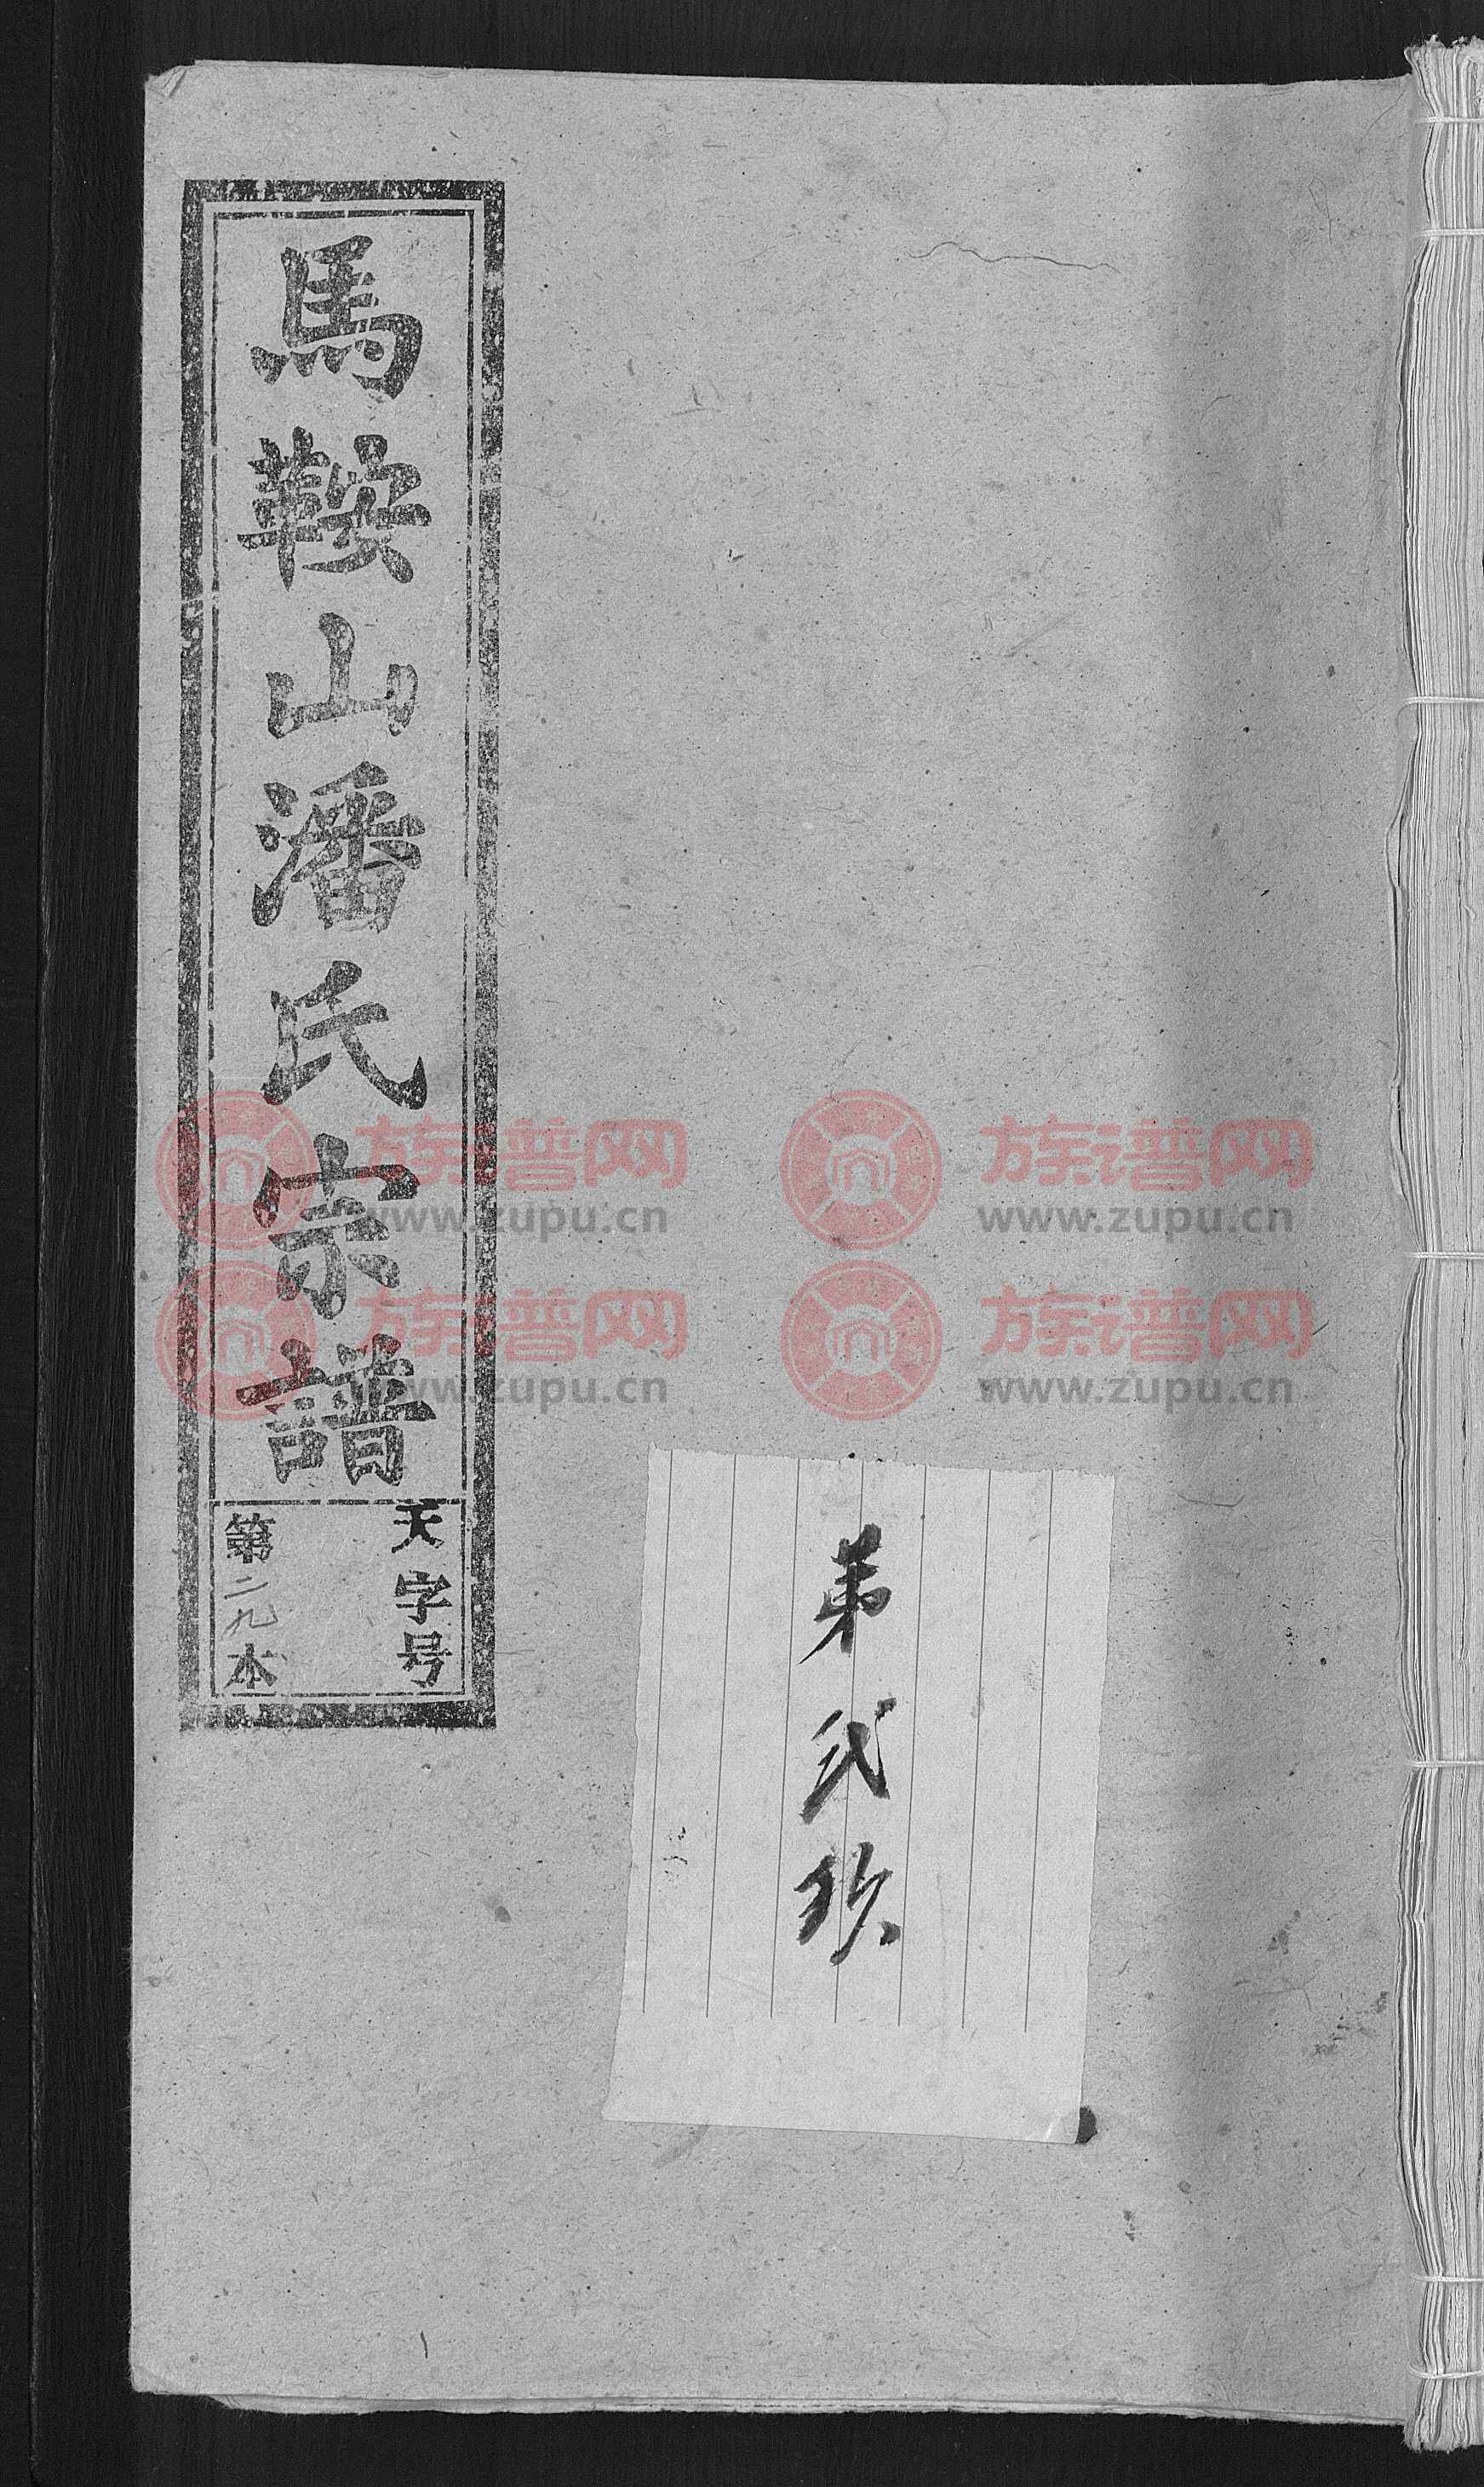 馬鞍山潘氏宗譜
天字号
第二九本
弟弍玖
族谱网
www.zupu.cn
族谱网
www.zupu.cn
族谱网
www.zupu.cn
族谱网
www.zupu.cn